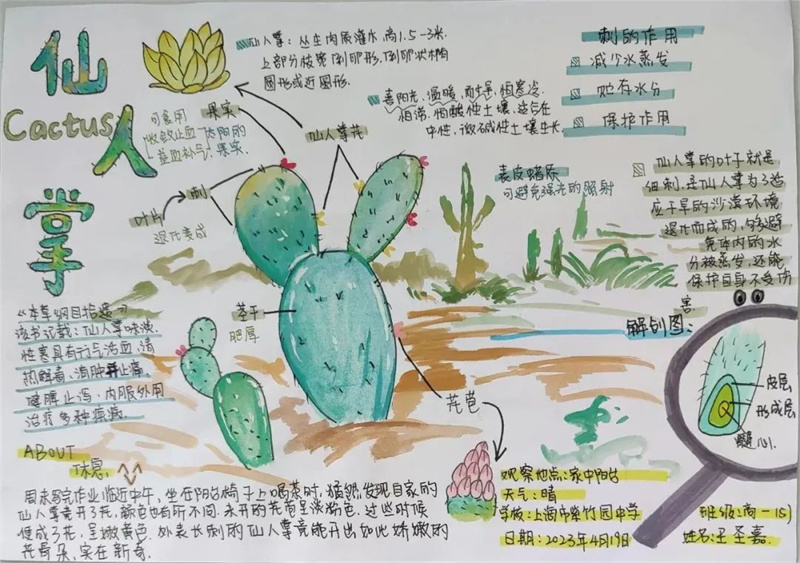 仙
人
掌
Cactus
仙人掌：丛生肉质灌木，高1.5-3米，
上部分枝宽倒卵形、倒卵状椭
圆形或近圆形。
喜阳光、温暖，耐旱，怕寒冷、
怕涝、怕酸性土壤，适合在
中性、微碱性土壤生长。
刺的作用
减少水蒸发
贮存水分
保护作用
可食用
收敛止血
果实
仙人掌花
刺
叶片
退化变成
茎干
肥厚
花苞
表皮蜡质
可避免强光的照射
仙人掌的叶子就是
细刺，是仙人掌为了适
应干旱的沙漠环境
退化而成的，能够避
免体内的水
分被蒸发，还能
保护自身不受伤
害
解剖图：
皮层
形成层
髓心
《本草纲目拾遗》
该书记载：仙人掌味淡
性寒具有行气活血、清
热解毒、消肿止痛、
健脾止泻，内服外用
治疗多种疾病。
ABOUT
休息
周末写完作业临近中午，坐在阳台椅子上喝茶时，猛然发现自家的
仙人掌竟开了花，颜色也有所不同。未开的花苞呈淡粉色，过些时候
便成了花，呈嫩黄色。外表长刺的仙人掌竟能开出如此娇嫩的
花骨朵，实在新奇。
观察地点：家中阳台
天气：晴
学校：上海市紫竹园中学
日期：2023年4月19日
班级：高一(5)
姓名：王圣嘉